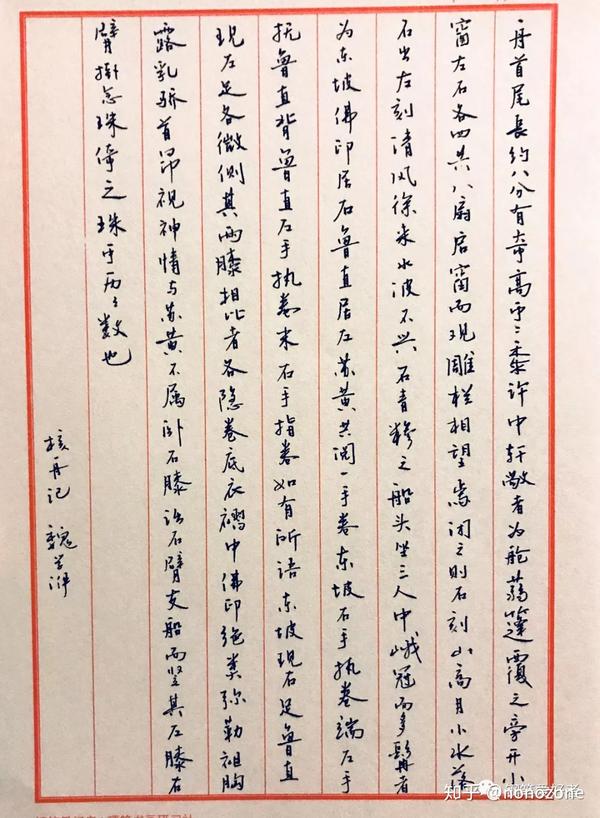 舟首尾长约八分有奇高可二黍许中轩敞者为舱蒻篷覆之旁开小
窗左右各四共八扇启窗而观雕栏相望焉闭之则右刻山高月小水落
石出左刻清风徐来水波不兴石青糁之船头坐三人中峨冠而多髯者
为东坡佛印居右鲁直居左苏黄共阅一手卷东坡右手执卷端左手
抚鲁直背鲁直左手执卷末右手指卷如有所语东坡现右足鲁直
现左足各微侧其两膝相比者各隐卷底衣褶中佛印绝类弥勒袒胸
露乳矫首昂视神情与苏黄不属卧右膝诎右臂支船而竖其左膝左
臂挂念珠倚之珠可历々数也
核舟记 魏学洢
知乎 @nonozone